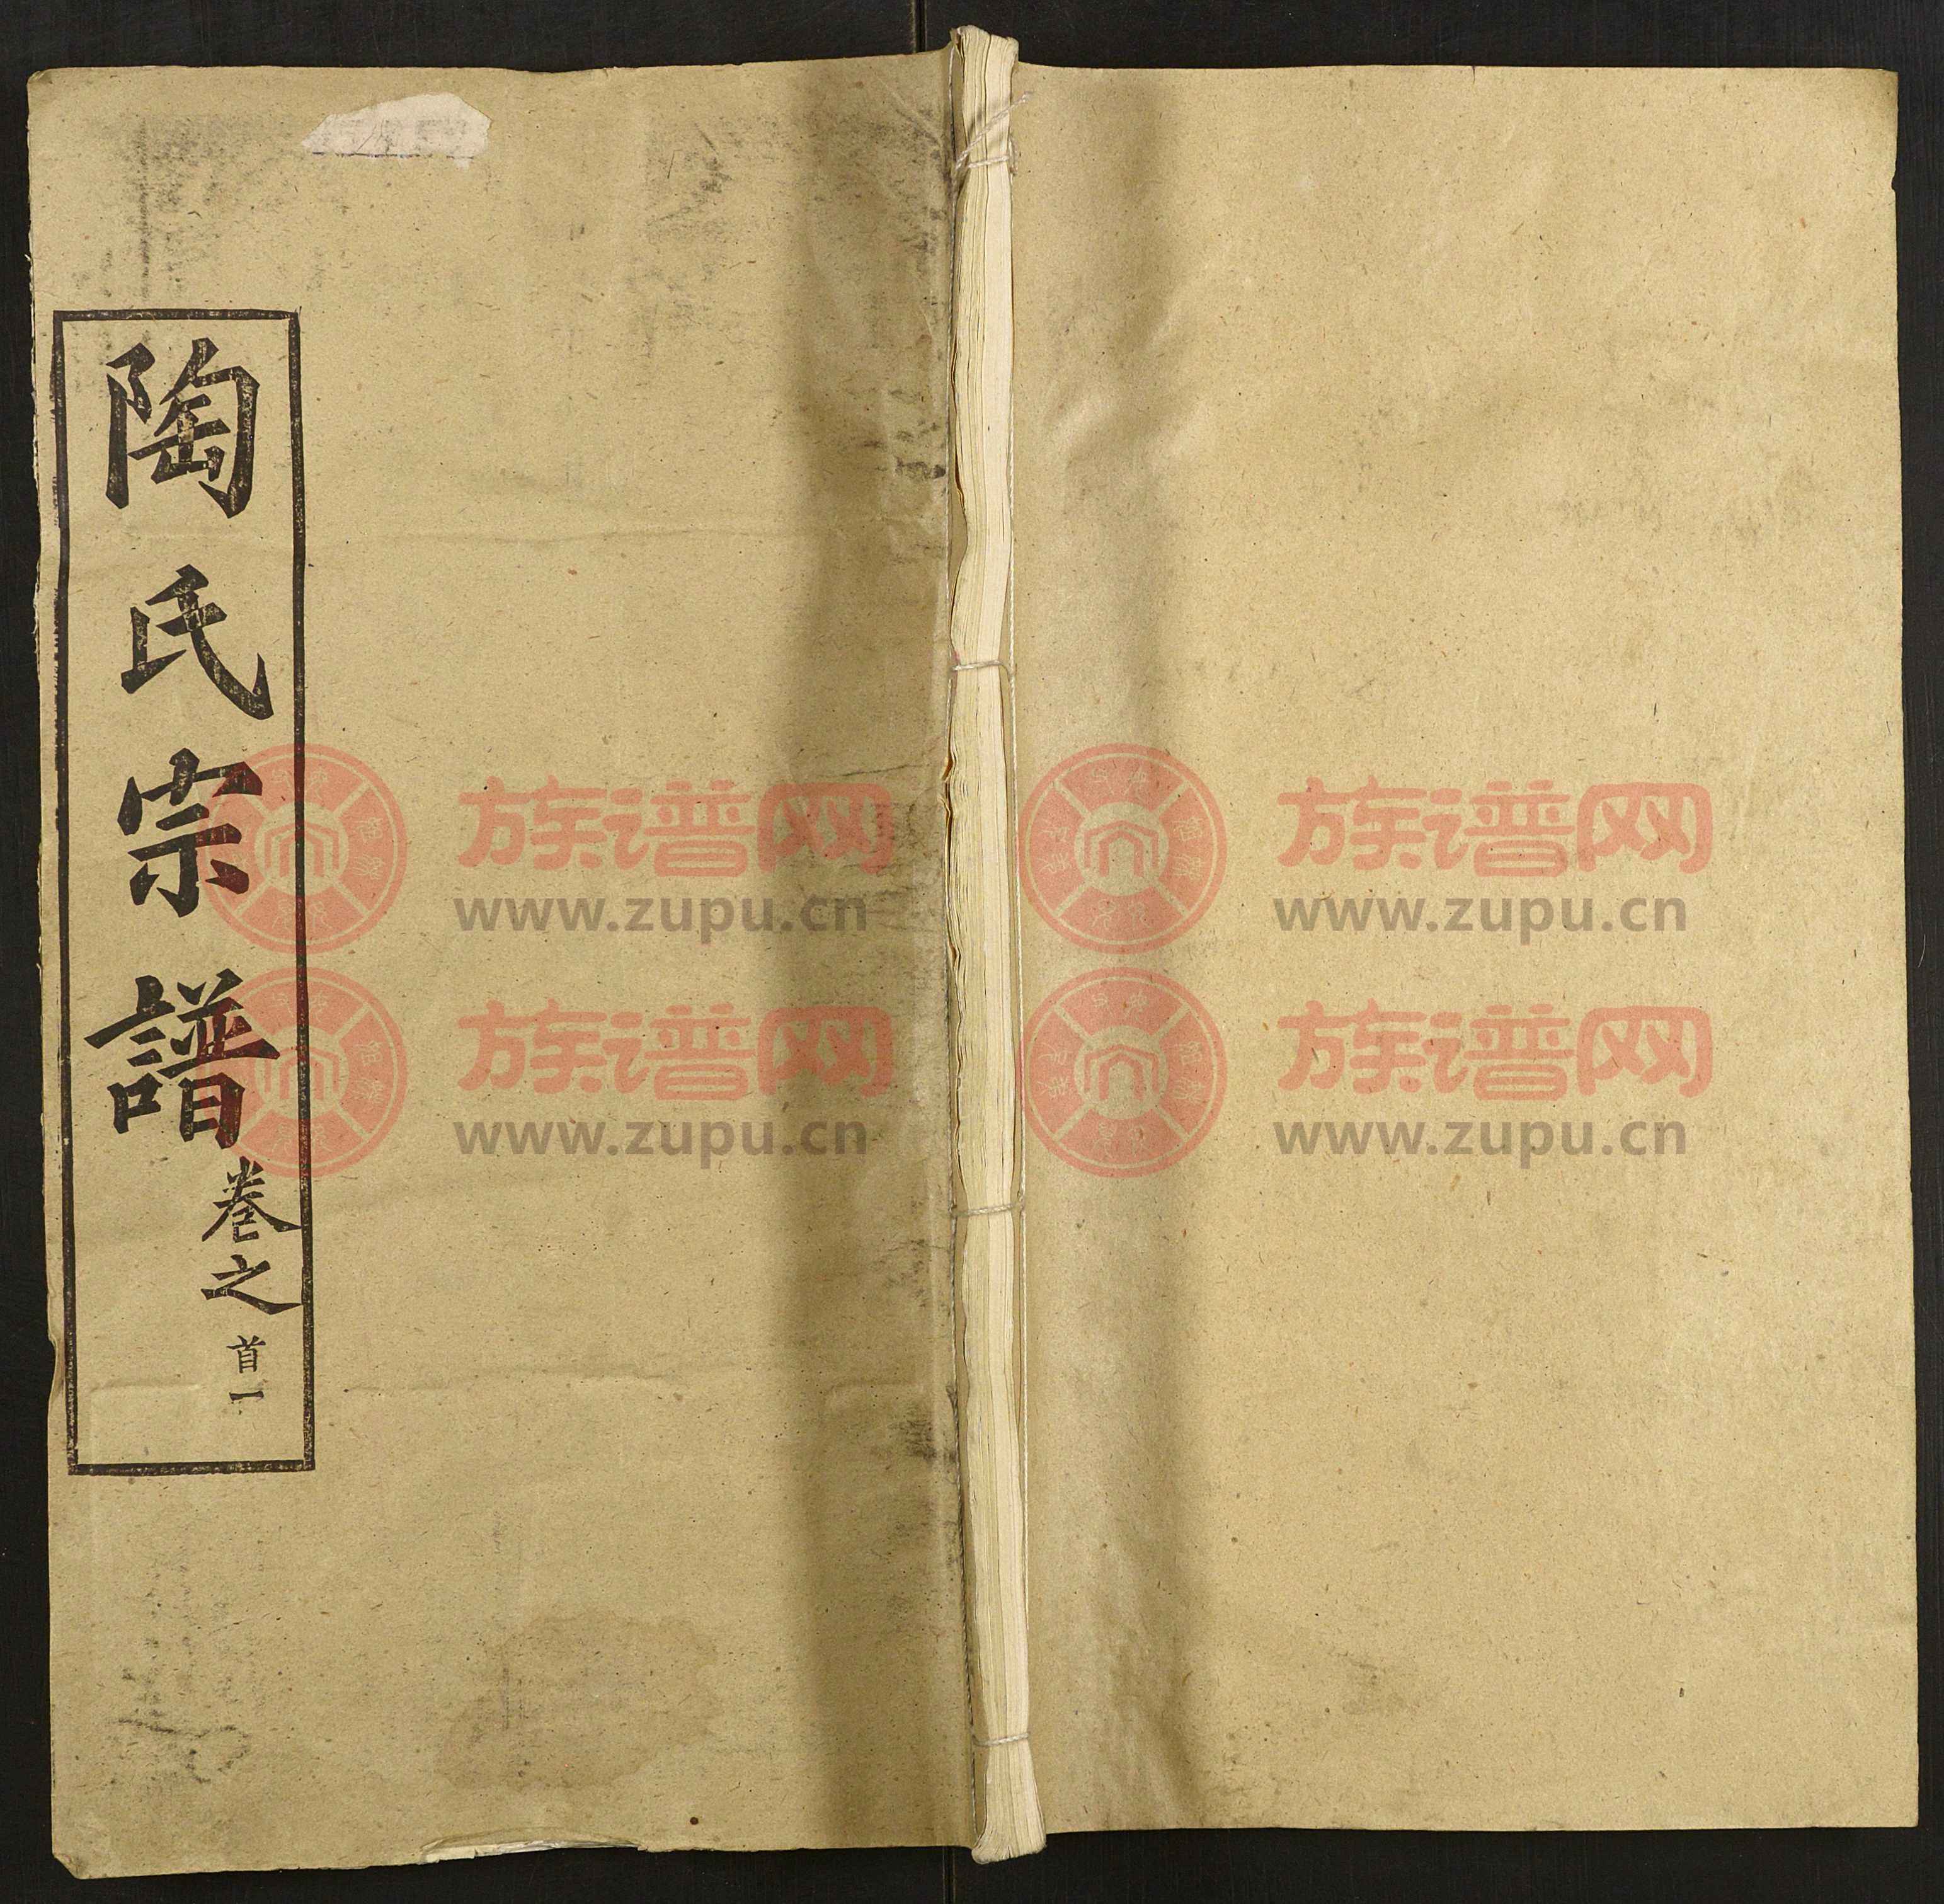 陶氏宗譜
卷之
首一
族谱网
www.zupu.cn
族谱网
www.zupu.cn
族谱网
www.zupu.cn
族谱网
www.zupu.cn